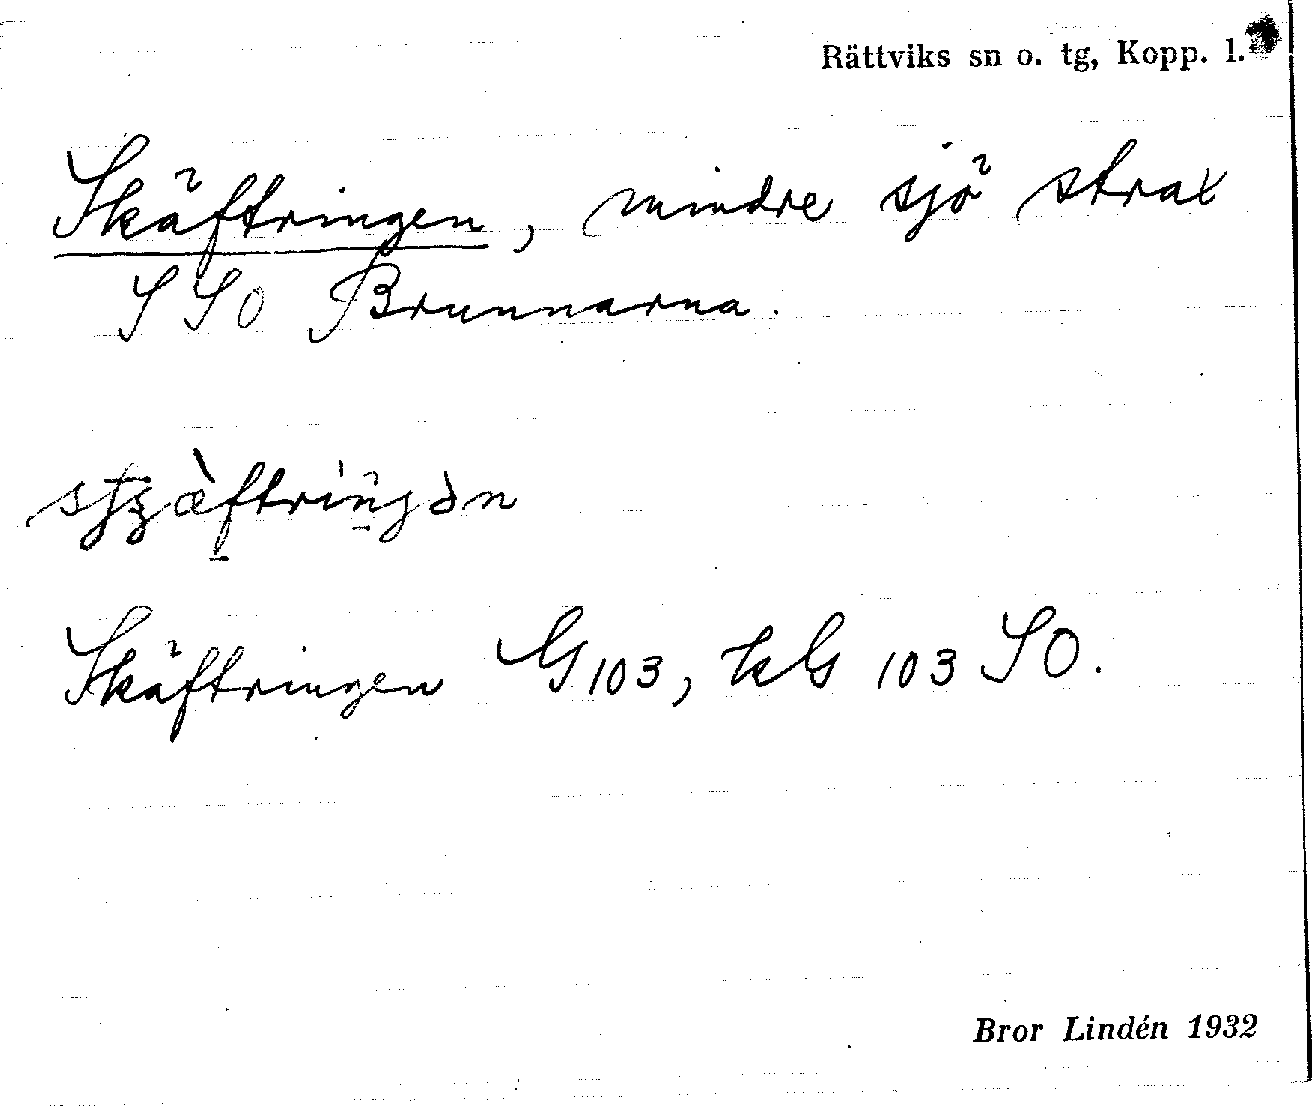 Rättviks sn o. tg, Kopp. l.
Skäftringen, mindre sjö strax
SSO Brunnarna.
Skäftringen G 103, kG 103 SO.
Bror Lindén 1932